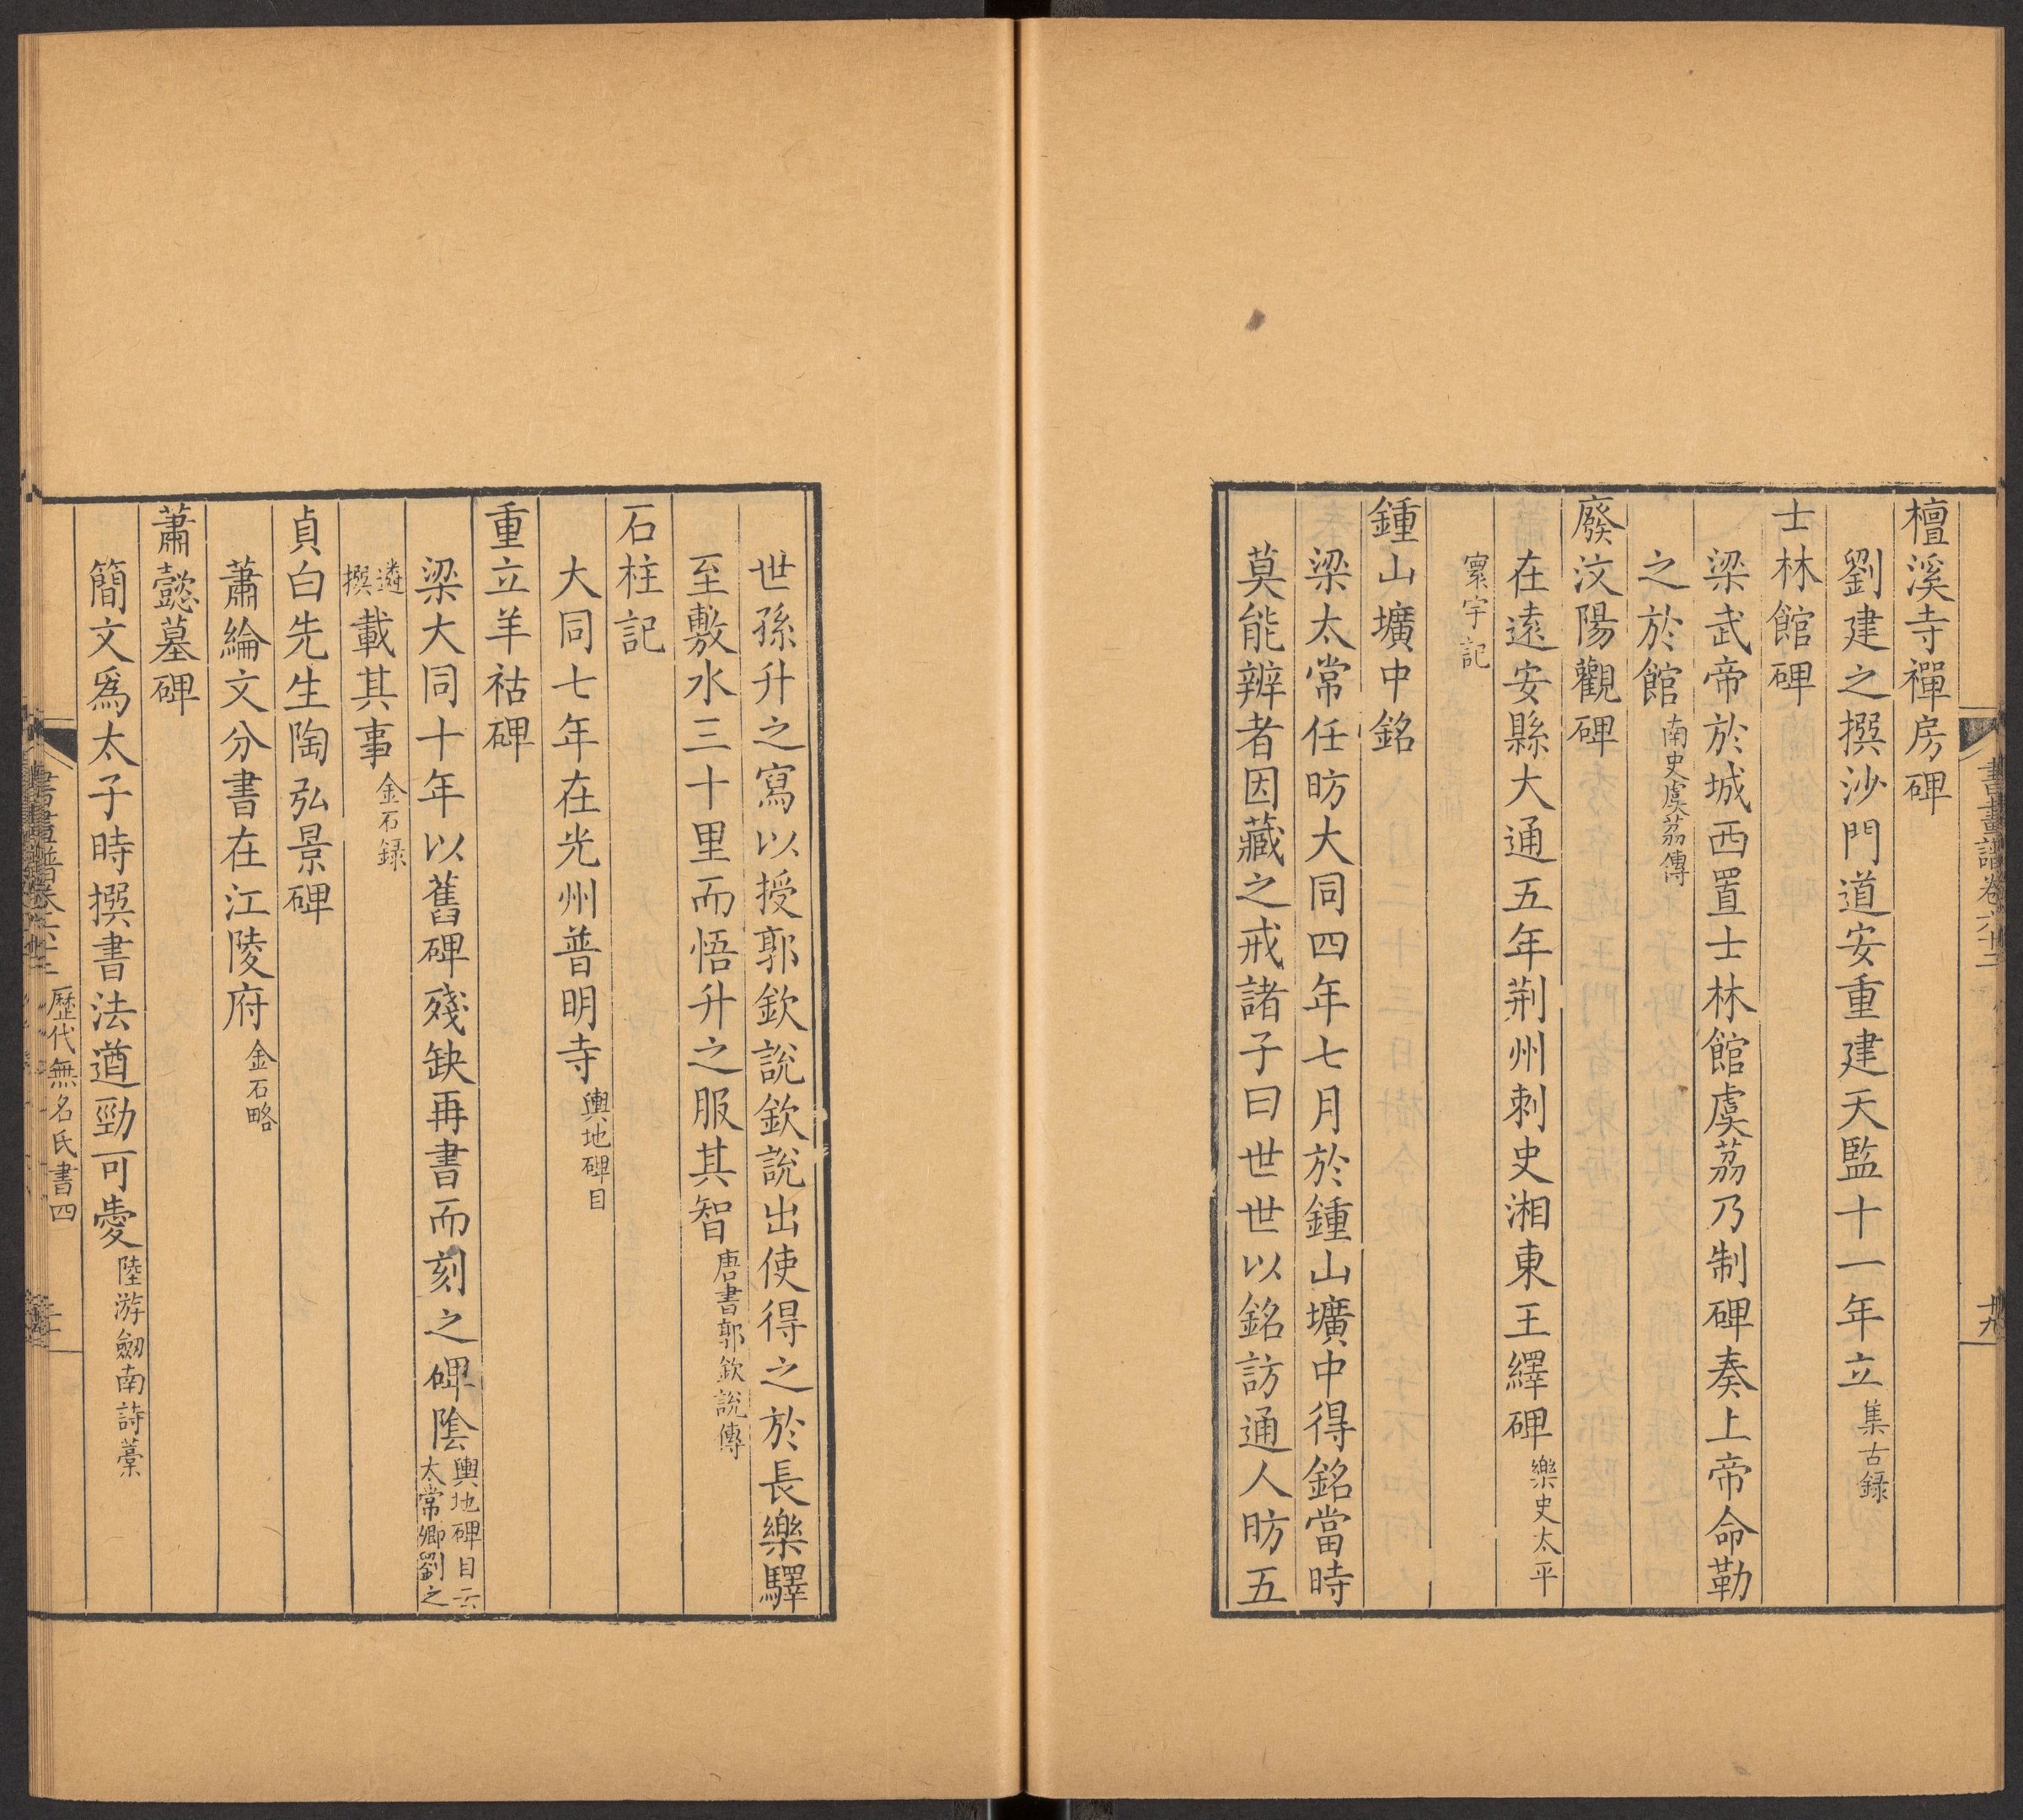 檀溪寺禪房碑
劉建之撰沙門道安重建天監十一年立集古録
士林館碑
梁武帝於城西置士林館虞荔乃制碑奏上帝命勒
之於館南史虞荔傳
廢汶陽觀碑
在遠安縣大通五年荆州刺史湘東王繹碑樂史太平
寰宇記
鍾山壙中銘
梁太常任昉大同四年七月於鍾山壙中得銘當時
莫能辨者因藏之戒諸子曰世世以銘訪通人昉五
世孫升之寫以授郭欽說欽說出使得之於長樂驛
至敷水三十里而悟升之服其智唐書郭欽說傳
石柱記
大同七年在光州普明寺輿地碑目
重立羊祜碑
梁大同十年以舊碑殘缺再書而刻之碑陰輿地碑目云太常卿劉之
遴撰載其事金石録
貞白先生陶弘景碑
蕭綸文分書在江陵府金石略
蕭懿墓碑
簡文爲太子時撰書法遒勁可愛陸游劒南詩藁
歷代無名氏書四